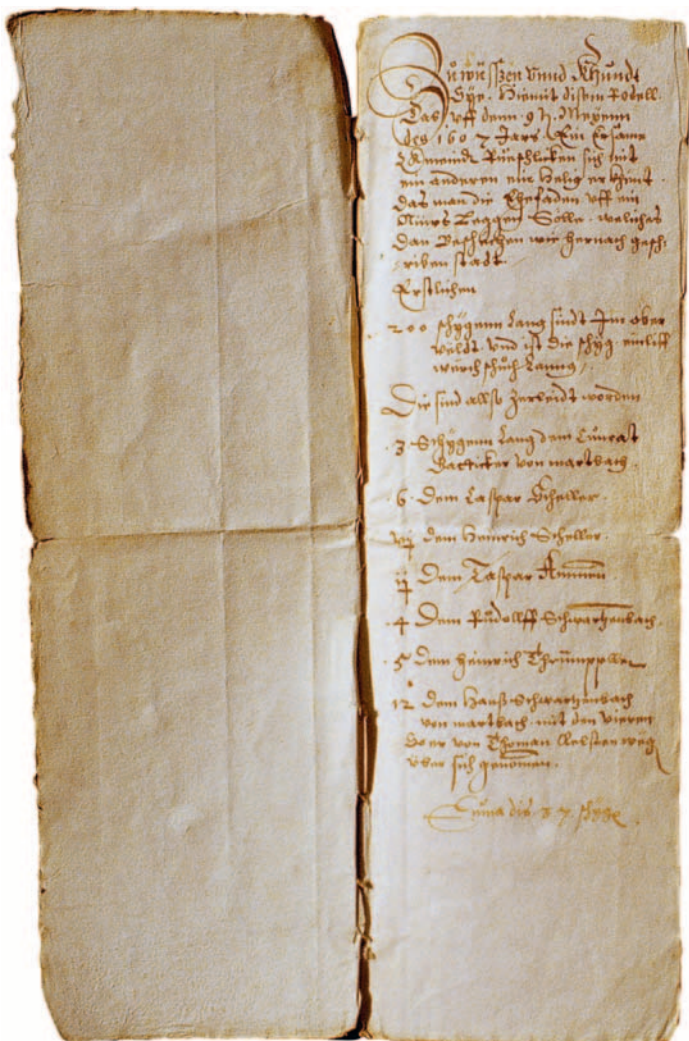 Zů wüssen vnnd khundt
sÿe. Hiemit disem Rodell.
Das vff dem .9t. Meÿenn
des 1607 Jars. Ein Ersame
Gmeindt Rüeschlicken sich mit
ein anderen ein helig erkhent.
das man die Ehefaden vff ein
Nüws Leggen Sölle. welches
dan Beschechen wie hernach gesch-
riben stadt.
Erstlichen
200 schÿgenn Lang sindt Im ober
wäldt. vnd ist die schÿg. einliff
wërch schůch Lanng.
Die sind allso Zerleidt worden
.3. Schÿgenn Lang dem Cůnrat
von marbach.
.6. dem Caspar Scheller.
vij dem Heinrich Scheller.
ij Dem Caspar
.4. Dem Růdollff Schwartzenbach.
.5. dem Heinrich Thrümppller
12 dem Hanß Schwartzenbach
von marbach mit den vieren
so er von Thoman wäg
vber sich genomen.
Suma dis 37. schÿge